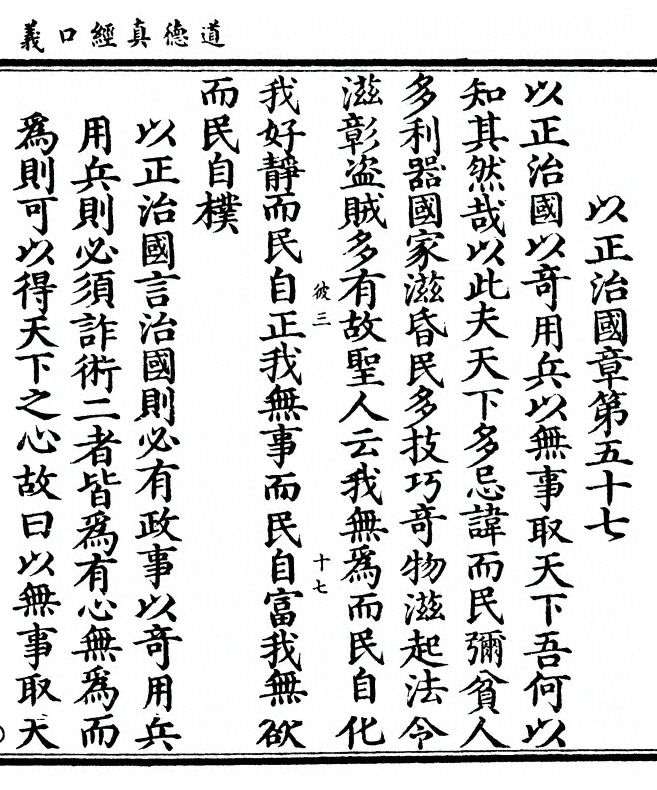 道德真經口義
以正治國章第五十七
以正治國以竒用兵以無事取天下吾何以
知其然哉以此夫天下多忌諱而民彌貧人
多利器國家滋昏民多技巧竒物滋起法令
滋彰盜賊多有故聖人云我無爲而民自化
彼三
十七
我好靜而民自正我無事而民自富我無欲
而民自樸
以正治國言治國則必有政事以竒用兵
用兵則必須詐術二者皆爲有心無爲而
爲則可以得天下之心故曰以無事取天